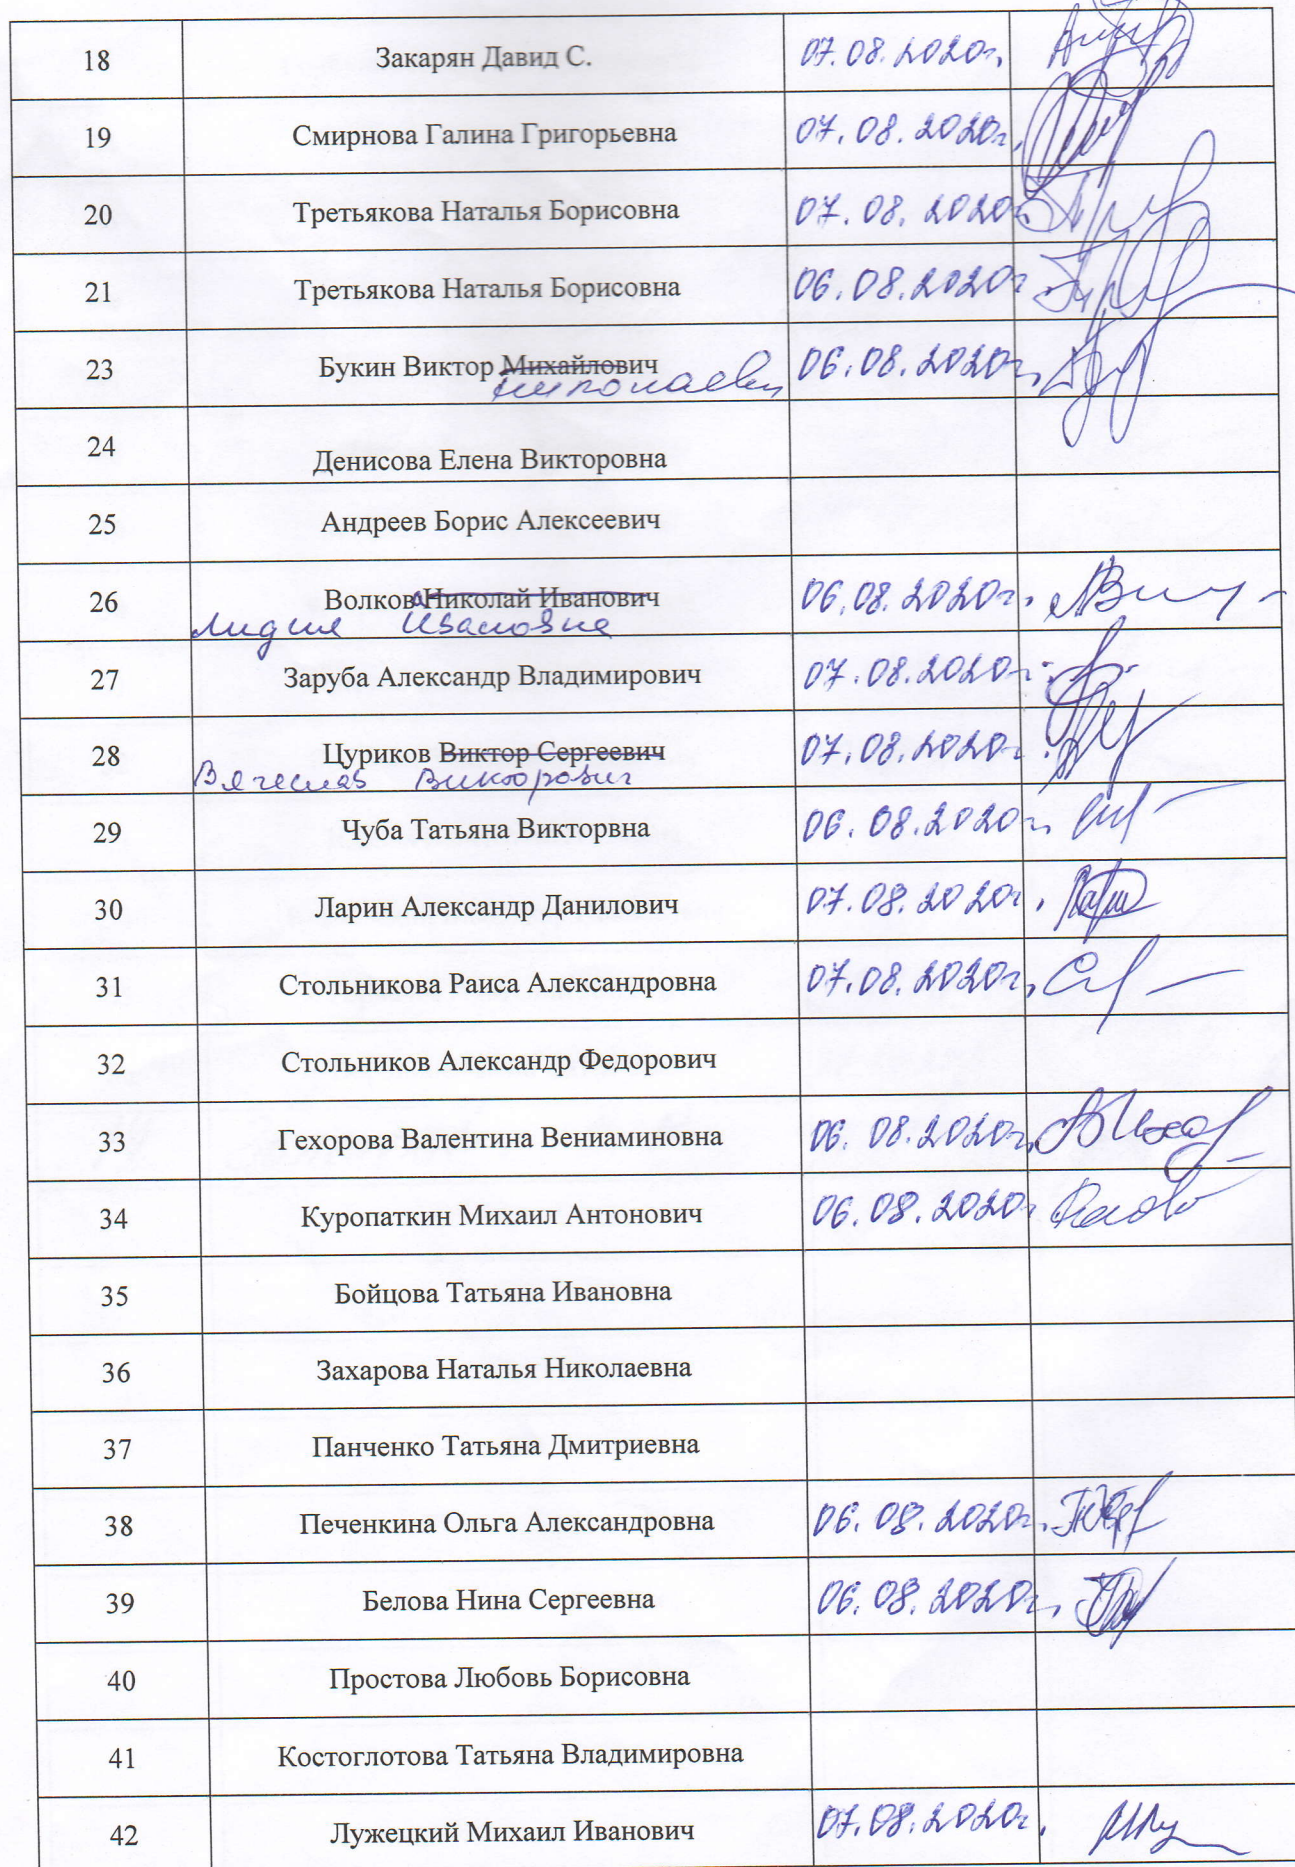 18 Закарян Давид С. 07.08.2020г.
19 Смирнова Галина Григорьевна 07.08.2020г.
20 Третьякова Наталья Борисовна 07.08.2020г.
21 Третьякова Наталья Борисовна 06.08.2020г.
23 Букин Виктор Михайлович 06.08.2020г.
николаевич
24 Денисова Елена Викторовна
25 Андреев Борис Алексеевич
26 Волкова Николай Иванович 06.08.2020г.
Лидия Ивановна
27 Заруба Александр Владимирович 07.08.2020г.
28 Цуриков Виктор Сергеевич 07.08.2020г.
Вячеслав Викторович
29 Чуба Татьяна Викторвна 06.08.2020г.
30 Ларин Александр Данилович 07.08.2020г.
31 Стольникова Раиса Александровна 07.08.2020г.
32 Стольников Александр Федорович
33 Гехорова Валентина Вениаминовна 06.08.2020г.
34 Куропаткин Михаил Антонович 06.08.2020г
35 Бойцова Татьяна Ивановна
36 Захарова Наталья Николаевна
37 Панченко Татьяна Дмитриевна
38 Печенкина Ольга Александровна 06.08.2020г.
39 Белова Нина Сергеевна 06.08.2020г.
40 Простова Любовь Борисовна
41 Костоглотова Татьяна Владимировна
42 Лужецкий Михаил Иванович 07.08.2020г.